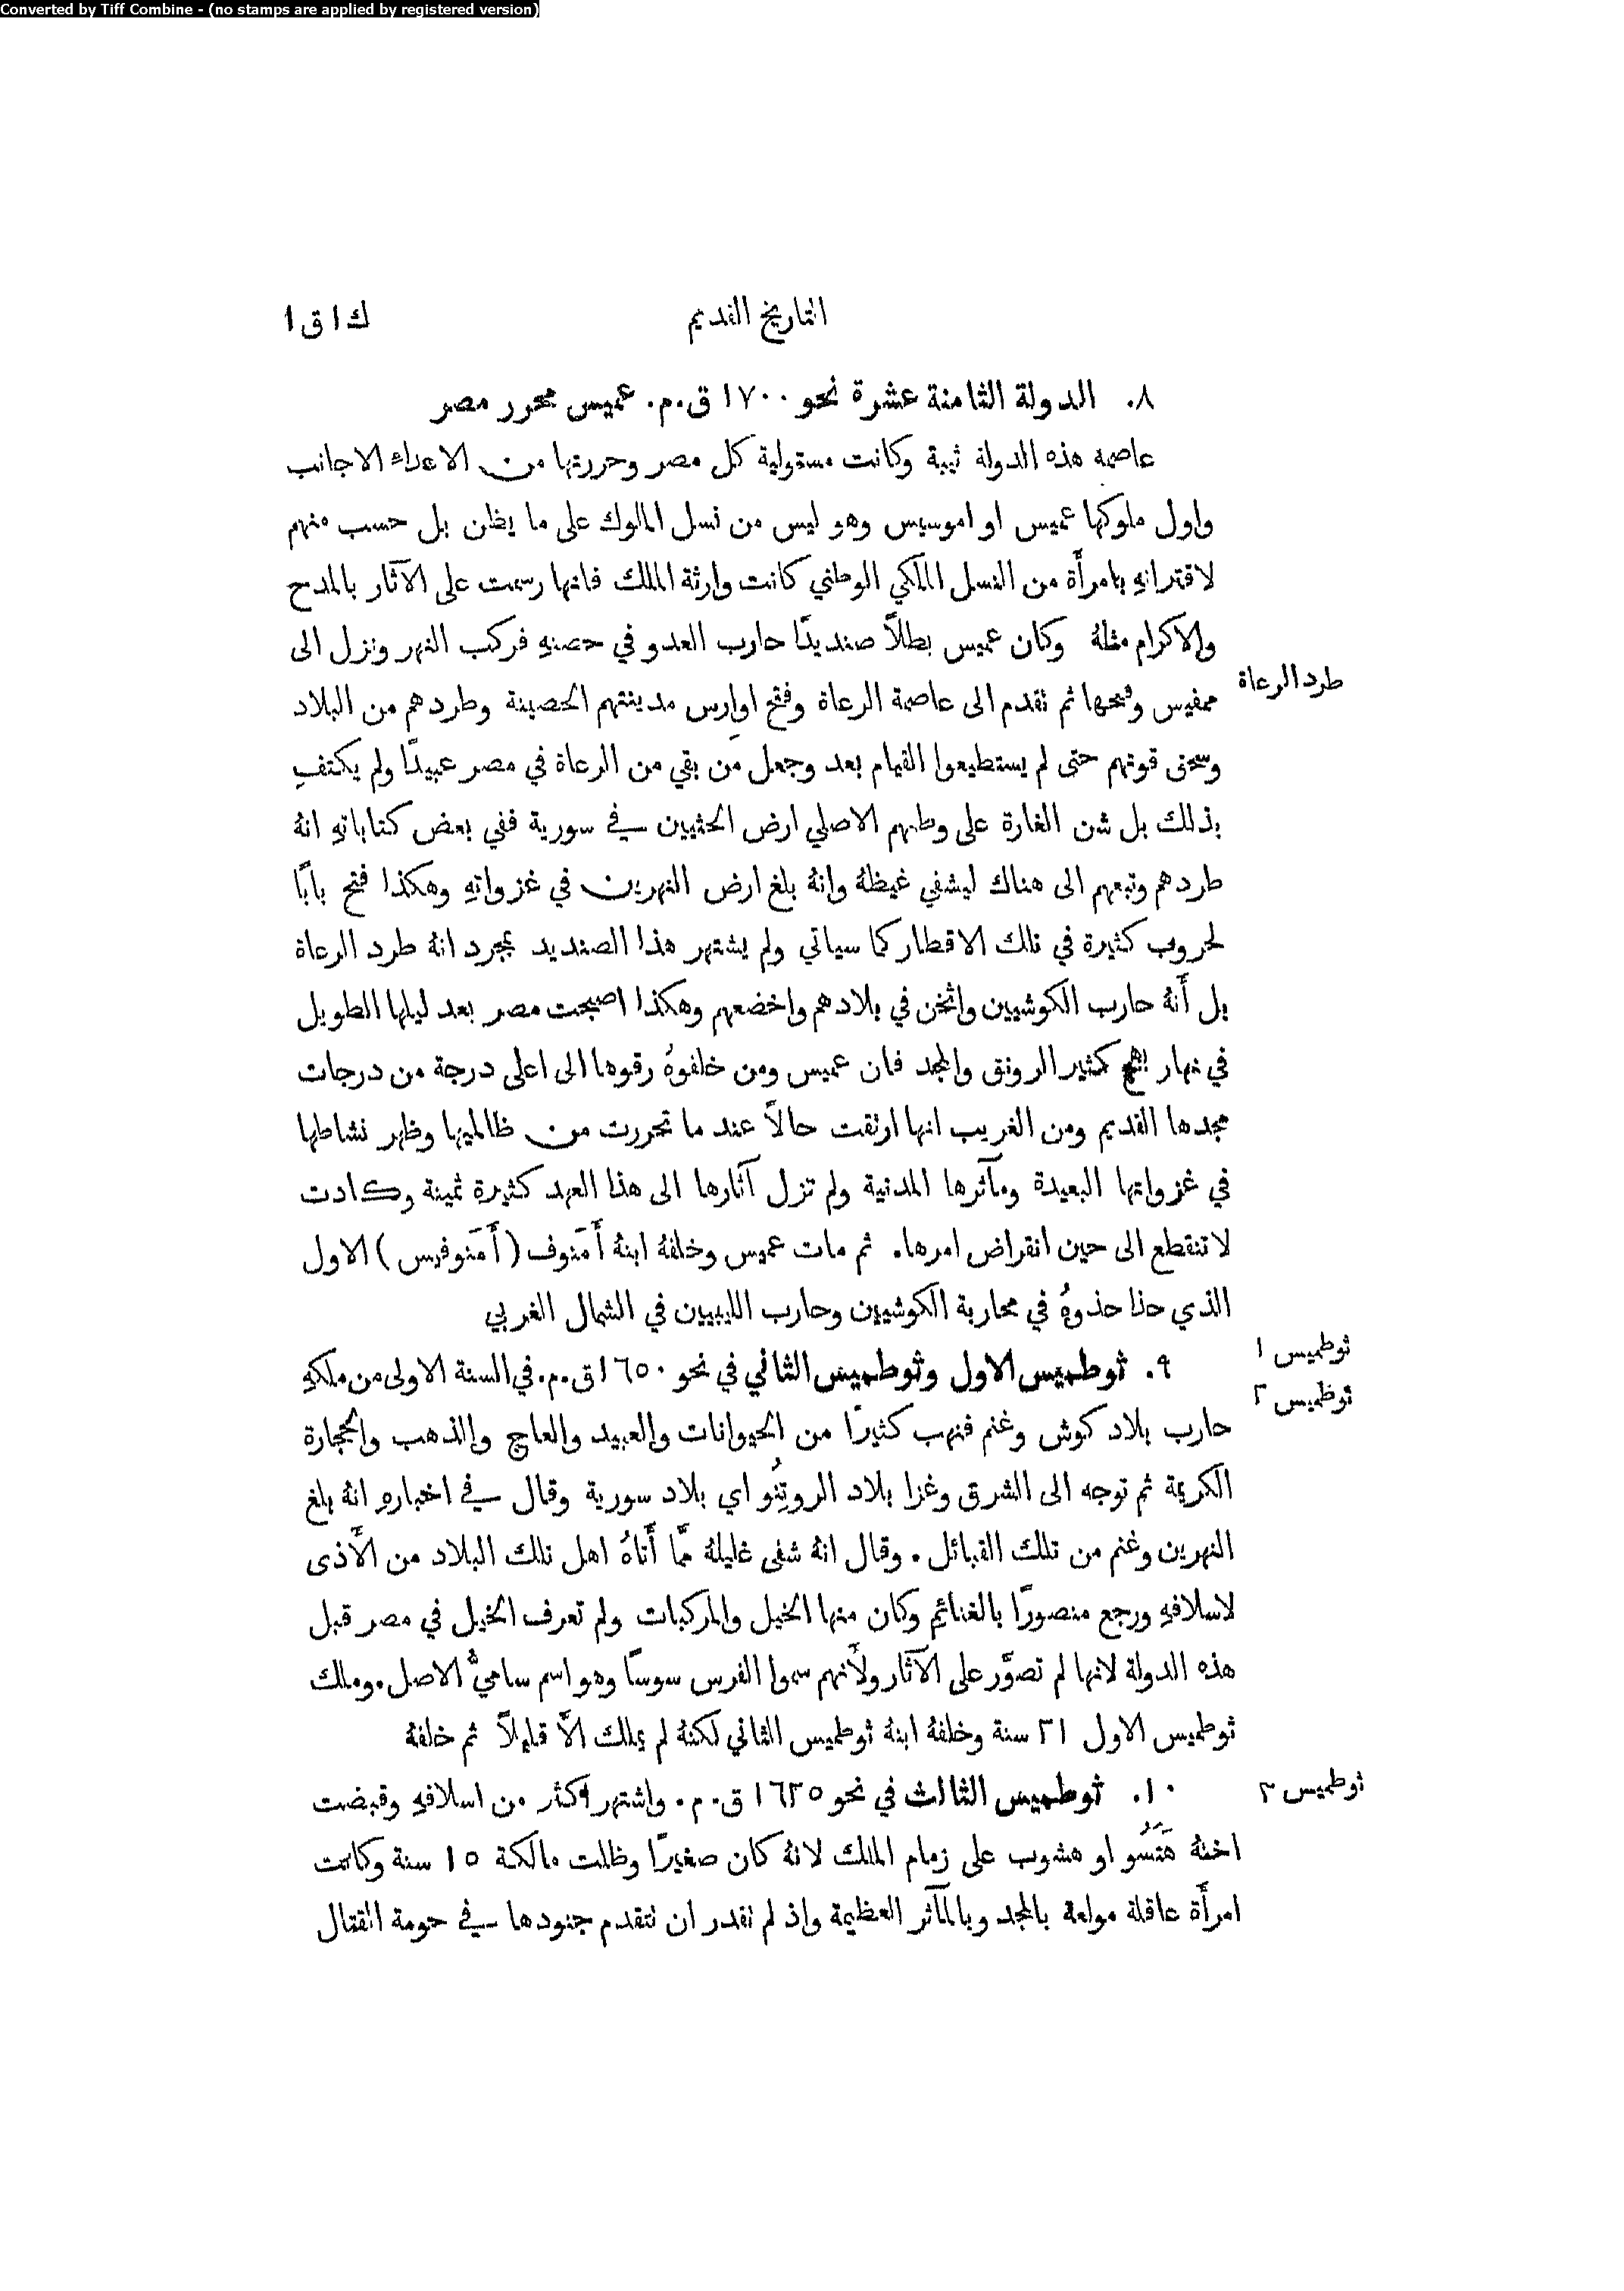 Converted by Tiff Combine - (no stamps are applied by registered version)
التاريخ القديم
ك ١ ق ١
٨. الدولة الثامنة عشرة نحو ١٧٠٠ ق.م. عميس محرر مصر
عاصمة هذه الدولة ثيبة وكانت مستولية كل مصر وحررتها من الاعداء الاجانب
واول ملوكها عميس او اموسيس وهو ليس من نسل الملوك على ما يظن بل حسب منهم
لاقترانهِ بامرأة من النسل الملكي الوطني كانت وارثة الملك فانها رسمت على الآثار بالمدح
والاكرام مثلهُ وكان عميس بطلاً صنديدًا حارب العدو في حصنهِ فركب النهر ونزل الى
طرد الرعاة
ممفيس وفتحها ثم تقدم الى عاصمة الرعاة وفتح اوارس مدينتهم الحصينة وطردهم من البلاد
وسحق قوتهم حتى لم يستطيعوا القيام بعد وجعل مَن بقي من الرعاة في مصر عبيدًا ولم يكتفِ
بذلك بل شن الغارة على وطنهم الاصلي ارض الحثيين في سورية ففي بعض كتاباتهِ انهُ
طردهم وتبعهم الى هناك ليشفي غيظهُ وانهُ بلغ ارض النهرين في غزواتهِ وهكذا فتح بابًا
لحروب كثيرة في تلك الاقطار كما سياتي ولم يشتهر هذا الصنديد بمجرد انهُ طرد الرعاة
بل أنهُ حارب الكوشيين واثخن في بلادهم واخضعهم وهكذا اصبحت مصر بعد ليلها الطويل
في نهار بهج كثير الرونق والمجد فان عميس ومن خلفوهُ رقوها الى اعلى درجة من درجات
مجدها القديم ومن الغريب انها ارتقت حالاً عند ما تحررت من ظالميها وظهر نشاطها
في غزواتها البعيدة ومآثرها المدنية ولم تزل آثارها الى هذا العهد كثيرة ثمينة وكادت
لا تنقطع الى حين انقراض امرها. ثم مات عميس وخلفهُ ابنهُ أَمَنوف (أَمَنوفيس) الاول
الذي حذا حذوهُ في محاربة الكوشيين وحارب الليبيين في الشمال الغربي
ثوطميس ١
٩. ثوطميس الاول وثوطميس الثاني في نحو ١٦٥٠ ق.م. في السنة الاولى من ملكهِ
ثوطميس ٢
حارب بلاد كوش وغنم فنهب كثيرًا من الحيوانات والعبيد والعاج والذهب والحجارة
الكريمة ثم توجه الى الشرق وغزا بلاد الروتِنُو اي بلاد سورية وقال في اخبارهِ انهُ بلغ
النهرين وغنم من تلك القبائل. وقال انهُ شفى غليلهُ مما أتاهُ اهل تلك البلاد من الأذى
لاسلافهِ ورجع منصورًا بالغنائم وكان منها الخيل والمركبات ولم تعرف الخيل في مصر قبل
هذه الدولة لانها لم تصوَّر على الآثار ولأنهم سموا الفرس سوسًا وهو اسم ساميُّ الاصل. وملك
ثوطميس الاول ٢١ سنة وخلفهُ ابنهُ ثوطميس الثاني لكنهُ لم يملك الاَّ قليلاً ثم خلفهُ
١٠. ثوطميس الثالث في نحو ١٦٢٥ ق.م. واشتهر اكثر من اسلافهِ وقبضت
ثوطميس ٣
اختهُ هَتَسُو او هشوب على زمام الملك لانهُ كان صغيرًا وظلت مالكة ١٥ سنة وكانت
امرأة عاقلة مولعة بالمجد وبالمآثر العظيمة واذ لم تقدر ان تتقدم جنودها في حومة القتال